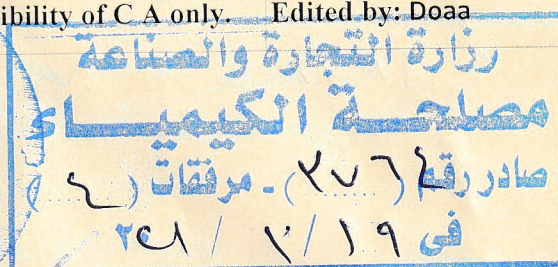 ibility of C A only. Edited by: Doaa
وزارة التجارة والصناعة
مصلحة الكيمياء
صادر رقم (٣٧٦٤) - مرفقات (٤)
فى ١٩ /